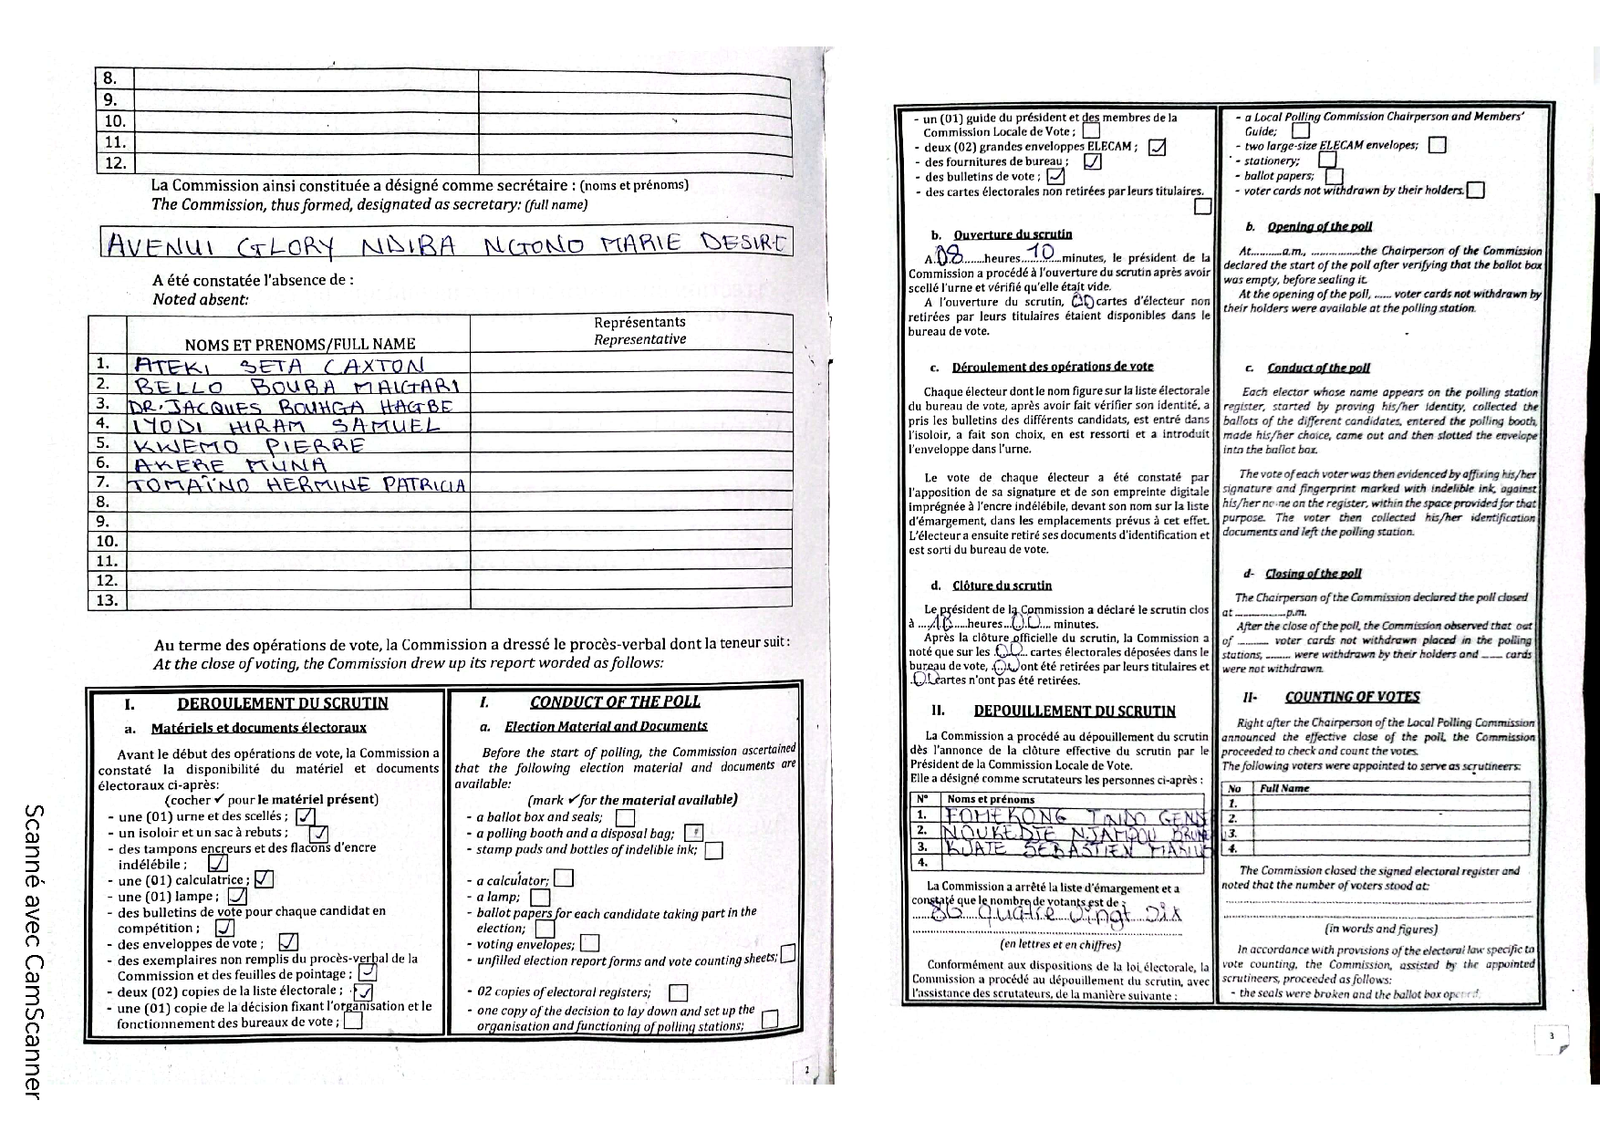 8.
9.
10.
11.
12.
La Commission ainsi constituée a désigné comme secrétaire : (noms et prénoms)
The Commission, thus formed, designated as secretary: (full name)
AVENUI GLORY NDIRA NGONO MARIE DESIRE
A été constatée l'absence de :
Noted absent:
NOMS ET PRENOMS/FULL NAME
Représentants
Representative
1. ATEKI SETA CAXTON
2. BELLO BOUBA MAIGARI
3. DR. JACQUES BOUHGA HAGBE
4. IYODI HIRAM SAMUEL
5. KWEMO PIERRE
6. AKERE MUNA
7. TOMAÏNO HERMINE PATRICIA
8.
9.
10.
11.
12.
13.
Au terme des opérations de vote, la Commission a dressé le procès-verbal dont la teneur suit :
At the close of voting, the Commission drew up its report worded as follows:
I. DEROULEMENT DU SCRUTIN
a. Matériels et documents électoraux
Avant le début des opérations de vote, la Commission a
constaté la disponibilité du matériel et documents
électoraux ci-après:
(cocher ✓ pour le matériel présent)
- une (01) urne et des scellés ; ✓
- un isoloir et un sac à rebuts ; ✓
- des tampons encreurs et des flacons d'encre
indélébile ; ✓
- une (01) calculatrice ; ✓
- une (01) lampe ; ✓
- des bulletins de vote pour chaque candidat en
compétition ; ✓
- des enveloppes de vote ; ✓
- des exemplaires non remplis du procès-verbal de la
Commission et des feuilles de pointage ; ✓
- deux (02) copies de la liste électorale ; ✓
- une (01) copie de la décision fixant l'organisation et le
fonctionnement des bureaux de vote ;
I. CONDUCT OF THE POLL
a. Election Material and Documents
Before the start of polling, the Commission ascertained
that the following election material and documents are
available:
(mark ✓ for the material available)
- a ballot box and seals;
- a polling booth and a disposal bag;
- stamp pads and bottles of indelible ink;
- a calculator;
- a lamp;
- ballot papers for each candidate taking part in the
election;
- voting envelopes;
- unfilled election report forms and vote counting sheets;
- 02 copies of electoral registers;
- one copy of the decision to lay down and set up the
organisation and functioning of polling stations;
2
Scanné avec CamScanner
- un (01) guide du président et des membres de la
Commission Locale de Vote ;
- deux (02) grandes enveloppes ELECAM ; ✓
- des fournitures de bureau ; ✓
- des bulletins de vote ; ✓
- des cartes électorales non retirées par leurs titulaires.
b. Ouverture du scrutin
A 08 heures 10 minutes, le président de la
Commission a procédé à l'ouverture du scrutin après avoir
scellé l'urne et vérifié qu'elle était vide.
A l'ouverture du scrutin, 00 cartes d'électeur non
retirées par leurs titulaires étaient disponibles dans le
bureau de vote.
c. Déroulement des opérations de vote
Chaque électeur dont le nom figure sur la liste électorale
du bureau de vote, après avoir fait vérifier son identité, a
pris les bulletins des différents candidats, est entré dans
l'isoloir, a fait son choix, en est ressorti et a introduit
l'enveloppe dans l'urne.
Le vote de chaque électeur a été constaté par
l'apposition de sa signature et de son empreinte digitale
imprégnée à l'encre indélébile, devant son nom sur la liste
d'émargement, dans les emplacements prévus à cet effet.
L'électeur a ensuite retiré ses documents d'identification et
est sorti du bureau de vote.
d. Clôture du scrutin
Le président de la Commission a déclaré le scrutin clos
à 18 heures 00 minutes.
Après la clôture officielle du scrutin, la Commission a
noté que sur les 00 cartes électorales déposées dans le
bureau de vote, 00 ont été retirées par leurs titulaires et
00 cartes n'ont pas été retirées.
II. DEPOUILLEMENT DU SCRUTIN
La Commission a procédé au dépouillement du scrutin
dès l'annonce de la clôture effective du scrutin par le
Président de la Commission Locale de Vote.
Elle a désigné comme scrutateurs les personnes ci-après :
N° Noms et prénoms
1. FOMEKONG
2. NOUKEDIE
3. KUATE SEBASTIEN
4.
La Commission a arrêté la liste d'émargement et a
constaté que le nombre de votants est de :
86 quatre vingt six
(en lettres et en chiffres)
Conformément aux dispositions de la loi électorale, la
Commission a procédé au dépouillement du scrutin, avec
l'assistance des scrutateurs, de la manière suivante :
- a Local Polling Commission Chairperson and Members'
Guide;
- two large-size ELECAM envelopes;
- stationery;
- ballot papers;
- voter cards not withdrawn by their holders.
b. Opening of the poll
At..........a.m., ...............the Chairperson of the Commission
declared the start of the poll after verifying that the ballot box
was empty, before sealing it.
At the opening of the poll, ...... voter cards not withdrawn by
their holders were available at the polling station.
c. Conduct of the poll
Each elector whose name appears on the polling station
register, started by proving his/her identity, collected the
ballots of the different candidates, entered the polling booth,
made his/her choice, came out and then slotted the envelope
into the ballot box.
The vote of each voter was then evidenced by affixing his/her
signature and fingerprint marked with indelible ink, against
his/her name on the register, within the space provided for that
purpose. The voter then collected his/her identification
documents and left the polling station.
d- Closing of the poll
The Chairperson of the Commission declared the poll closed
at ...............p.m.
After the close of the poll, the Commission observed that out
of ......... voter cards not withdrawn placed in the polling
stations, ........ were withdrawn by their holders and ...... cards
were not withdrawn.
II- COUNTING OF VOTES
Right after the Chairperson of the Local Polling Commission
announced the effective close of the poll, the Commission
proceeded to check and count the votes.
The following voters were appointed to serve as scrutineers:
No Full Name
1.
2.
3.
4.
The Commission closed the signed electoral register and
noted that the number of voters stood at:
(in words and figures)
In accordance with provisions of the electoral law specific to
vote counting, the Commission, assisted by the appointed
scrutineers, proceeded as follows:
- the seals were broken and the ballot box opened.
3